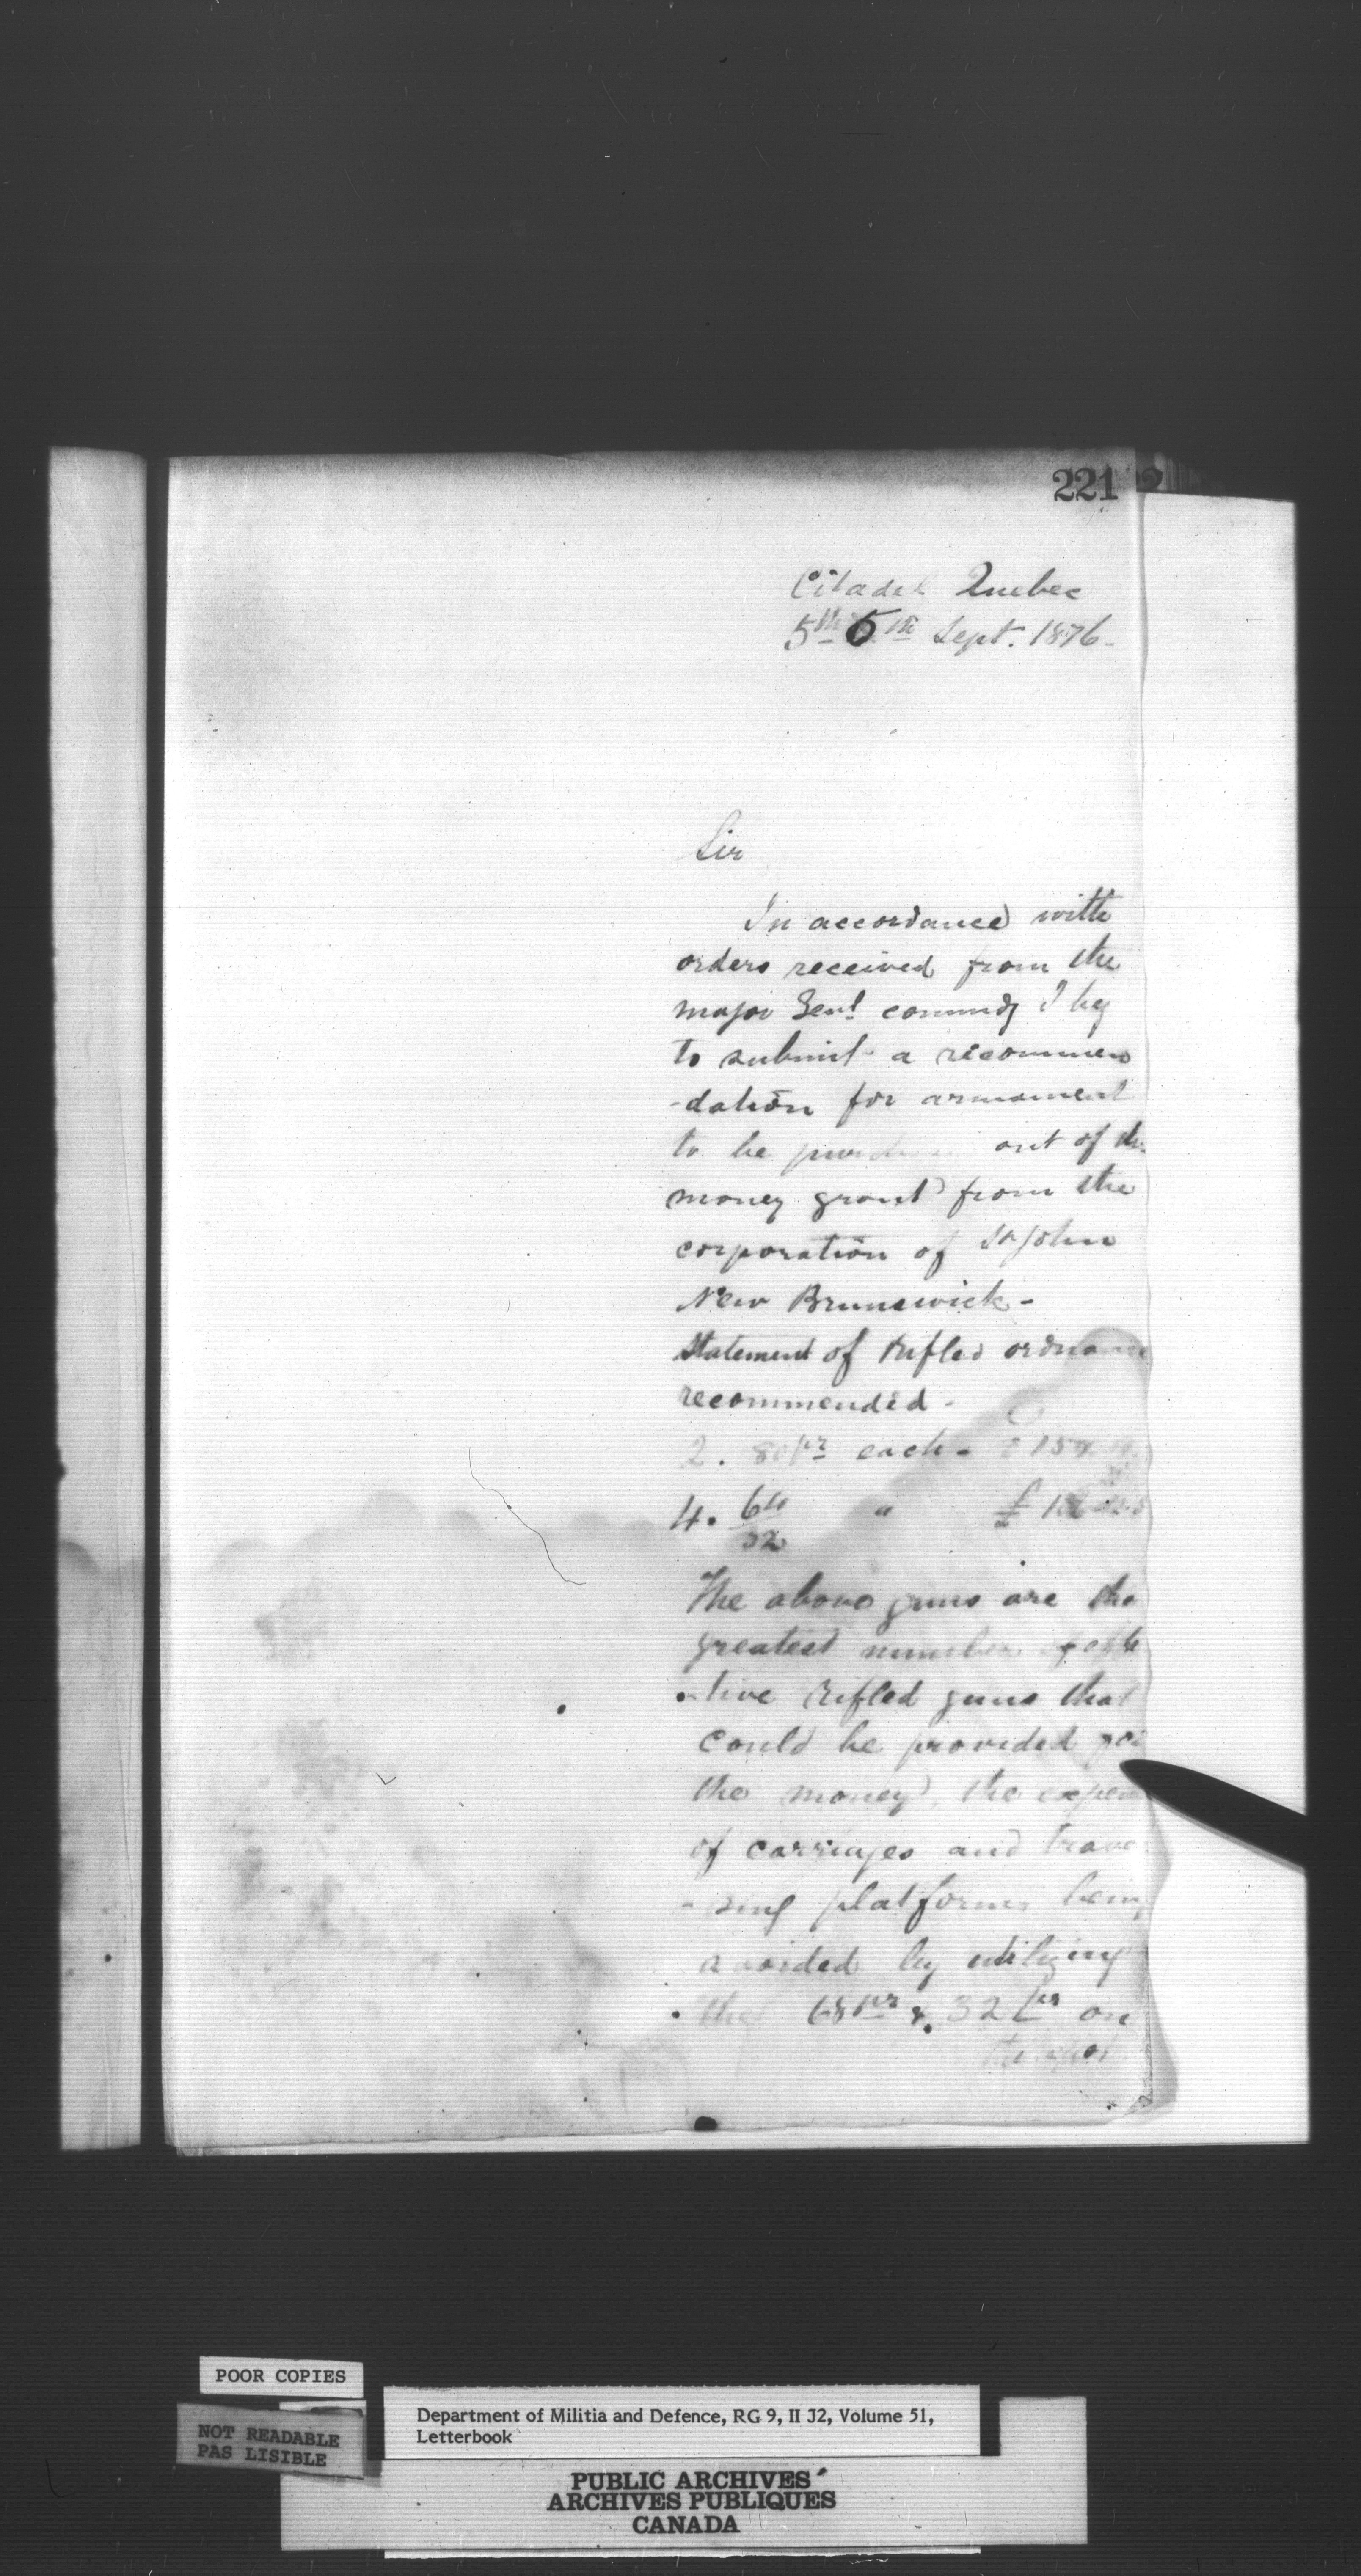 221
Citadel Quebec
5th 6th Sept. 1876-
Sir
In accordance with
orders received from the
major Genl commdg I beg
to submit a recommen
-dation for armament
to be out of the
money grant from the
corporation of St John
New Brunswick-
Statement of Rifled ordnance
recommended-
2. 80pr each-
4. 64/32 "
The above guns are the
greatest number of effe
-tive rifled guns that
could be provided
the money, the expen
of carriages and trave
-sing platforms being
avoided by utilizing
the 68pr & 32prs on
the spot
POOR COPIES
NOT READABLE
PAS LISIBLE
Department of Militia and Defence, RG 9, II J2, Volume 51,
Letterbook
PUBLIC ARCHIVES
ARCHIVES PUBLIQUES
CANADA